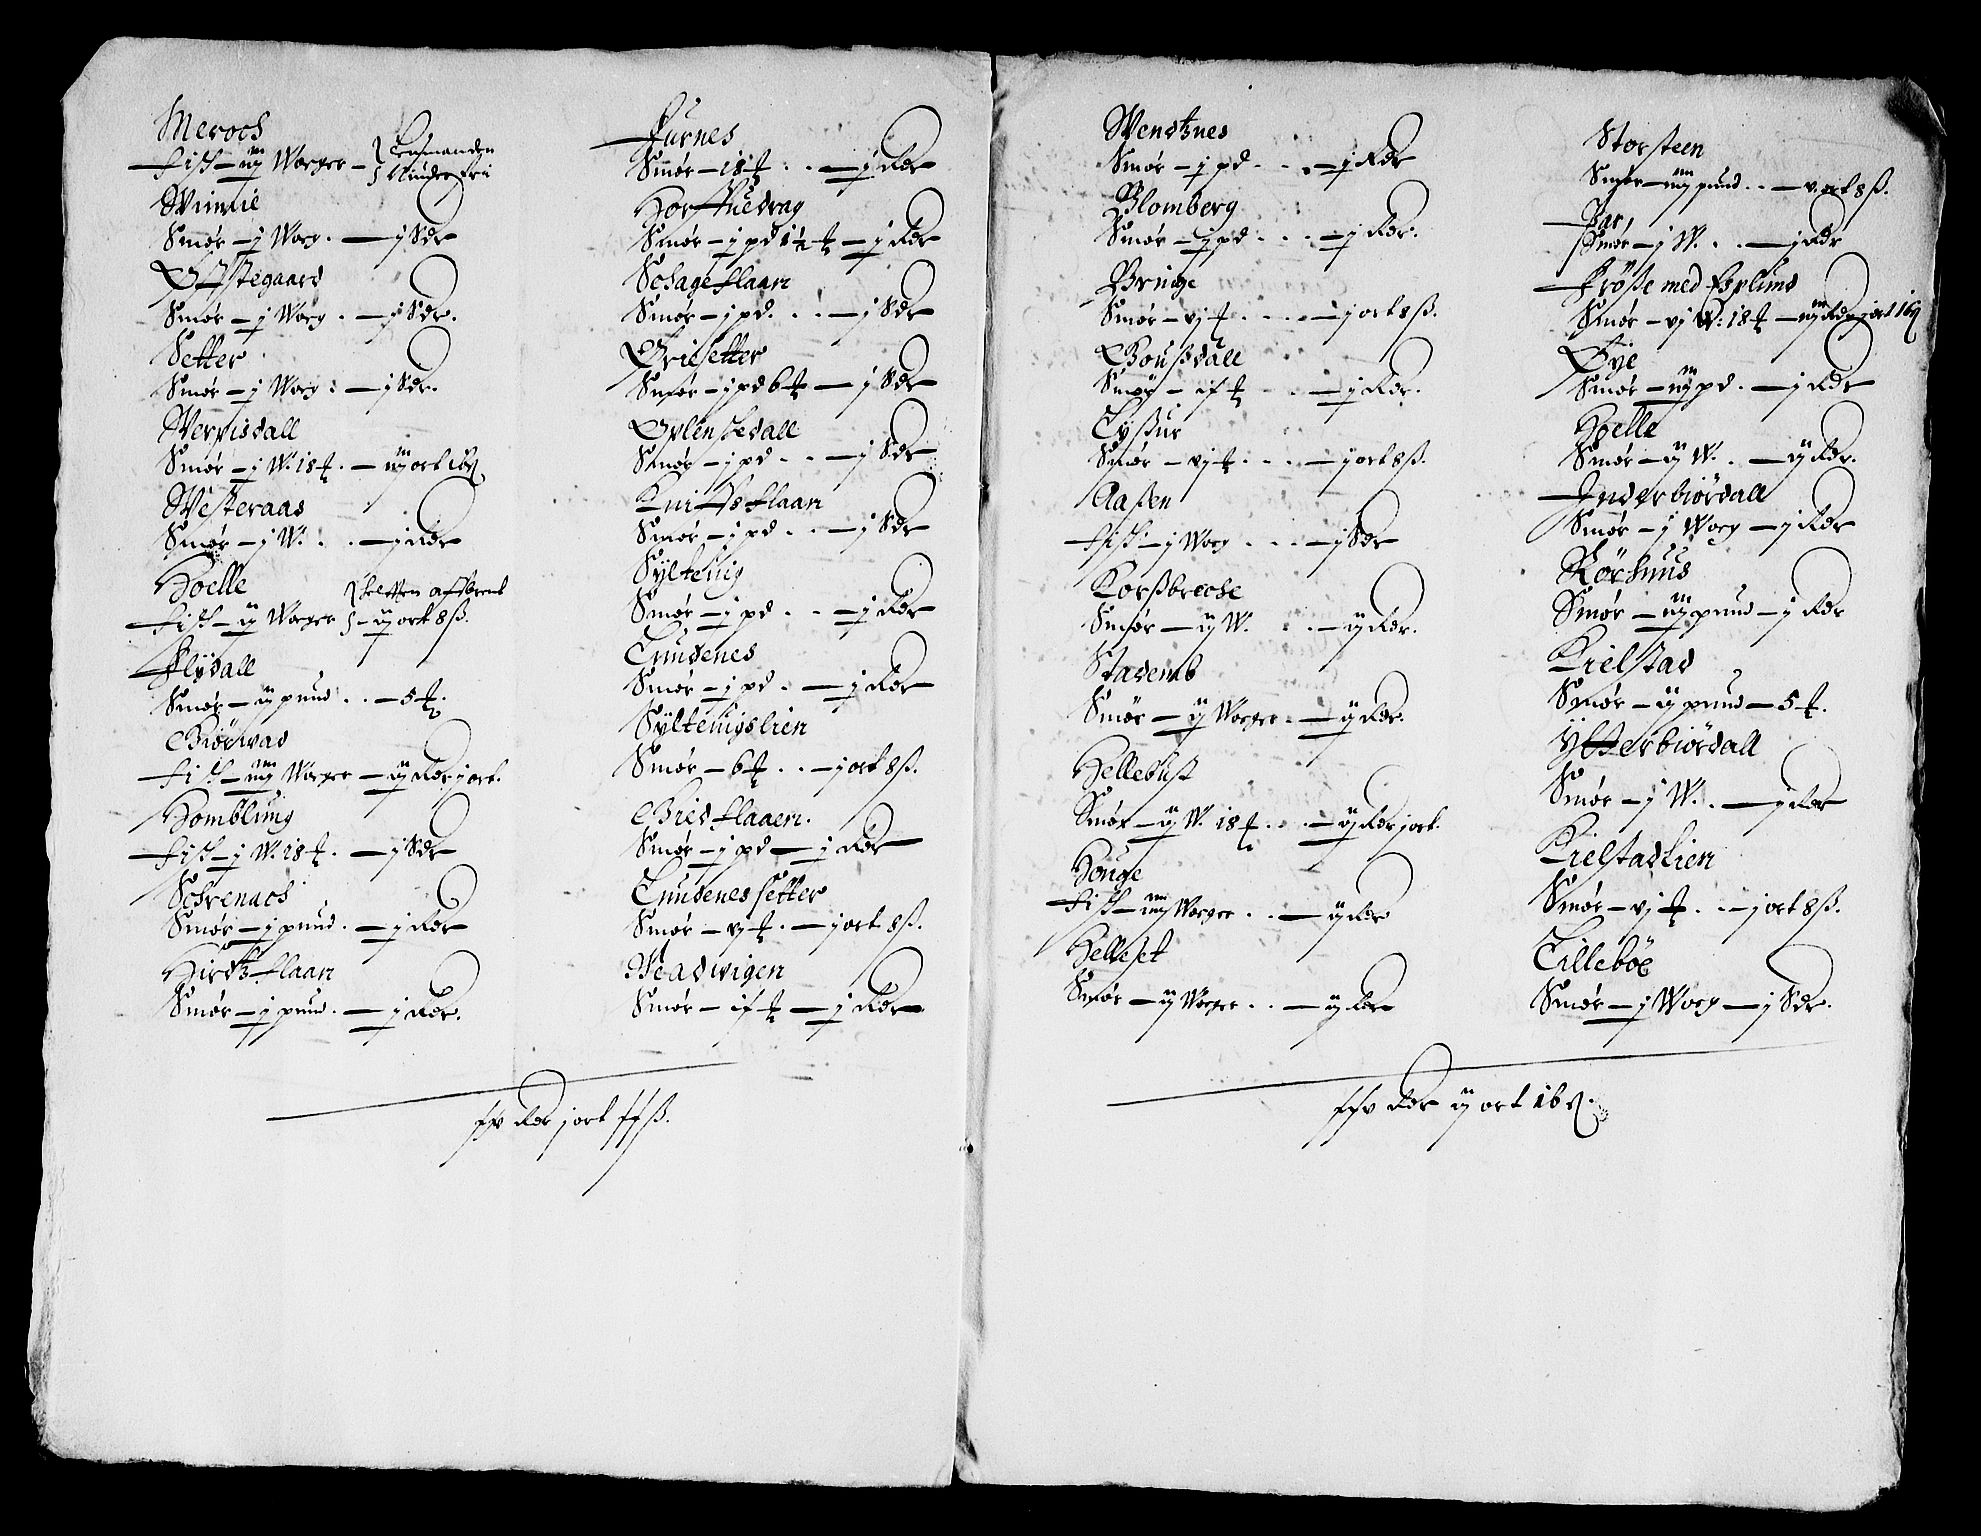 Meroch
Fisk – iiij Woger – Lensmanden
Ninder fri
Winnie
Smør – j Wog. – j Rdr
Østegaard
Smør – j Wog . – j Rdr.
Setter
Smør – j Wog : – j Rdr.
Werpisdall
Smør – j W. 18 ℔. – iij ort 16 ß
Westeraas
Smør – j W. . . – j Rdr
Hoelle
Fisk – ij Woger – ij ort 8 ß.
Flydall
Smør – ij pund . . – 5 ℔.
Giørwad
Fisk – iiij Woger – ij Rdr j ort.
Homblung
Fisk – j W. 18 ℔. – j Rdr
Schrenach
Smør – j pund . – j Rdr
Hirdtzflaan
Smør – j pund . – j Rdr.
Furnes
Smør – 18 ℔ . . – j Rdr
Horffuedrag
Smør – j pd 1½ ℔ – j Rdr
Schageflaan
Smør – j pd. . . – j Rdr
Grisetter
Smør – j pd 6 ℔ – j Rdr
Oplenskedall
Smør – j pd . . – j Rdr
Kniffsflaan
Smør – j pd . . – j Rdr
Sylteuig
Smør – j pd . . – j Rdr
Linndenes
Smør – j pd . – j Rdr
Syltenigslien
Smør – 6 ℔ . . – j ort 8 ß.
Giedflaaen.
Smør – j pd – j Rdr
Linndenessetter
Smør – vj ℔ . – j ort 8 ß.
Meadwigen
Smør – if ℔ – j Rdr
ffv Rdr j ort ffß.
Wendtznes
Smør – j pd . . . – j Rdr
Blomberg
Smør – j pd . . . – j Rdr.
Bringe
Smør – vj ℔ . . . – j ort 8 ß.
Goußdall
Smør – if ℔ . . – j Rdr.
Lyßur
Smør – vj ℔ . . . – j ort 8 ß.
Aaßen
Fisk – j Wog . . . – j Rdr
Korßbreche
Smør – ij W. . . – ij Rdr.
Stademb
Smør – ij Woger . – ij Rdr.
Hellebust
Smør – ij W. 18 ℔. . . – ij Rdr j ort.
Houge
Fisk – iiij Woger . . – ij Rdr
Helleset
Smør – ij Woger . . – ij Rdr
Storsteen
Smør – iiij pund . . – v ort 8 ß.
Far,
Smør – j W. . . – j Rdr
Frøße med Esplund
Smør – vj W: 18 ℔ – iiij Rdr j ort 16 ß
Øye
Smør – iiij pd . – j Rdr
Hoelle
Smør – ij W. . – ij Rdr.
Inderbiørdall
Smør – j Wog – j Rdr
Rørhuus
Smør – iiij pund – j Rdr
Kielstad
Smør – ij pund – 5 ℔.
Ytterbiørdall
Smør – j W. . – j Rdr
Kielstadlien
Smør – vj ℔ . . – j ort 8 ß.
Lillebøe
Smør – j Wog – j Rdr.
ffv Rdr ij ort 16 ß.